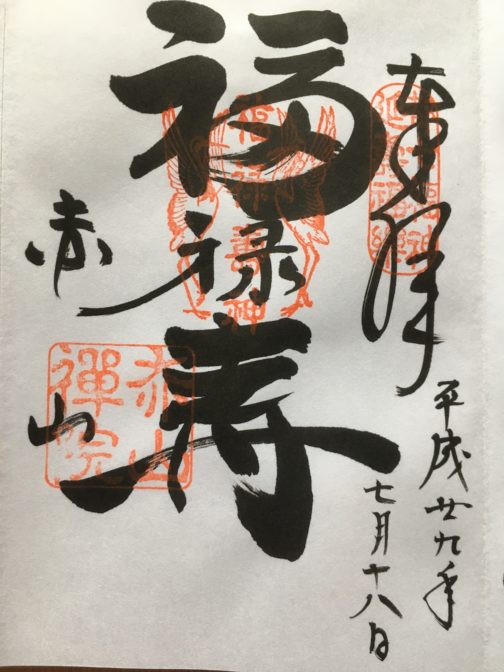 奉拝
平成廿九年
七月十八日
福禄寿
福禄寿神
赤山
赤山
禅院